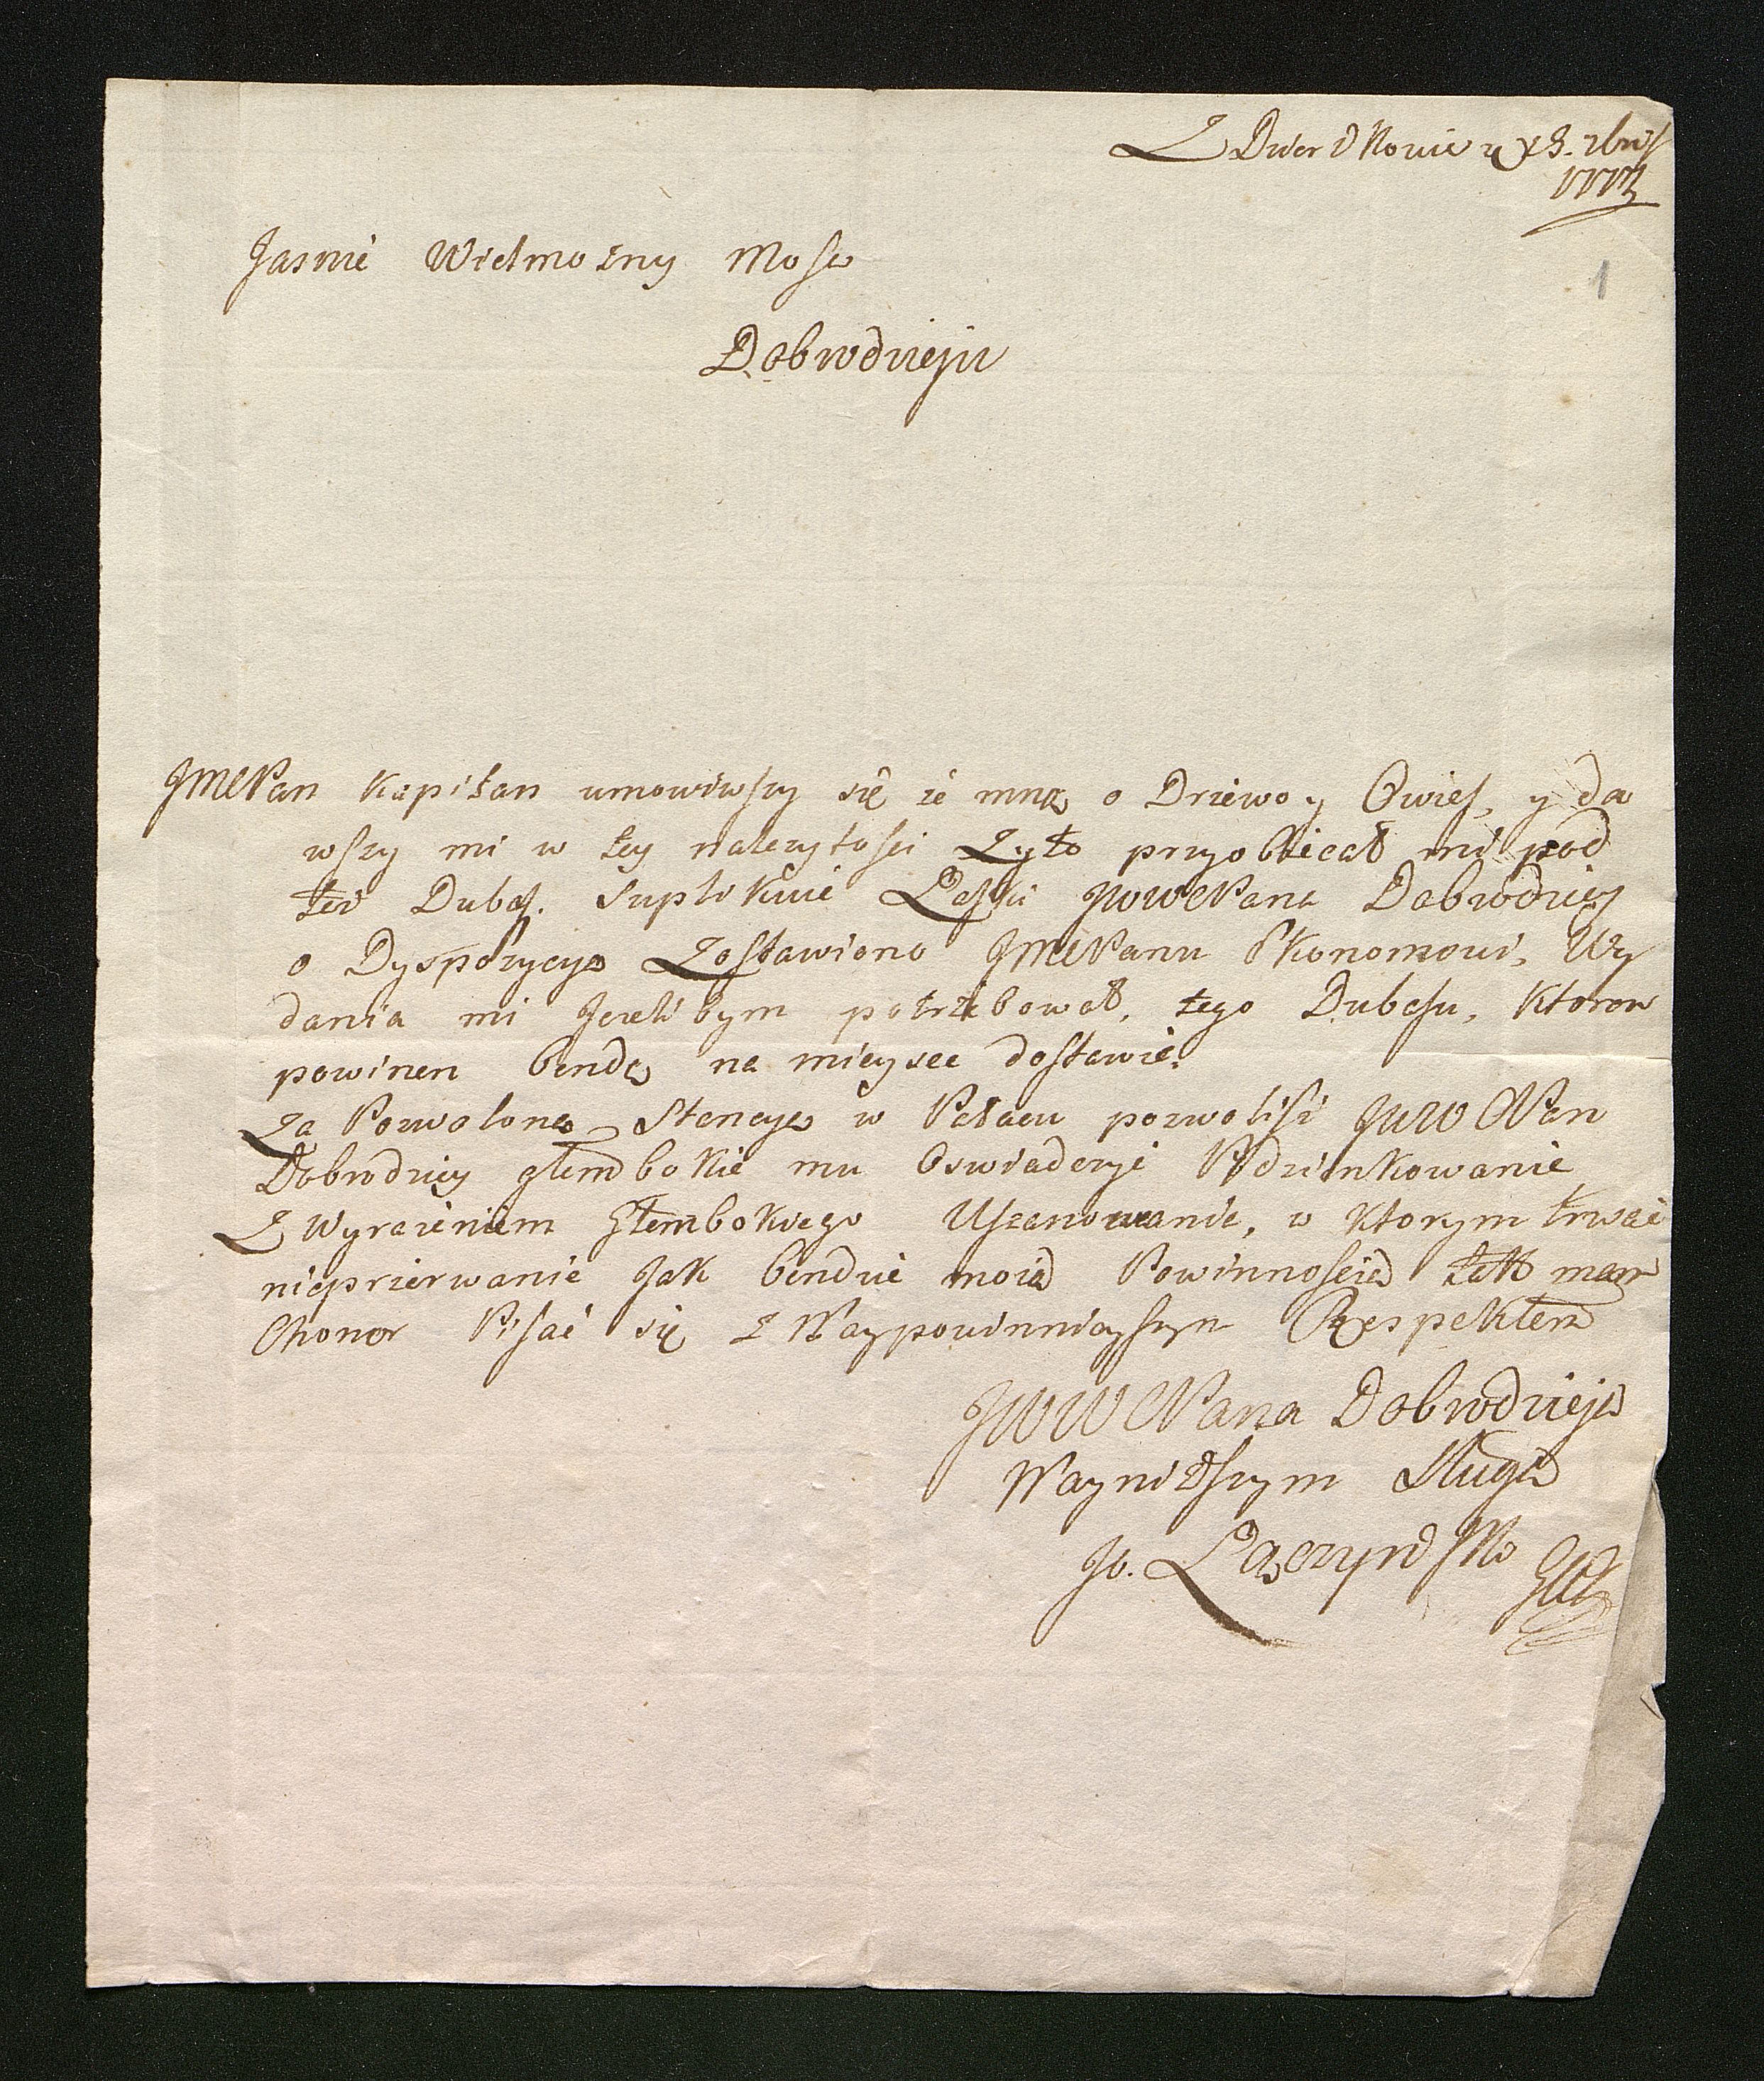 Z Dwerdkowie 13. 7bris
1773
1
Jasnie Wielmozny Mosci
Dobrodzieju
JMCPan Kapitan umowiwszy się ze mną o Drzewo y Owies, y da
wszy mi w tey nalezytosci Zyto przyobiecał mi pod
też Dubas. Suplikuie Łaski JWWCPana Dobrodzieia
o Dyspozycyą Zostawiono JMCPanu Ekonomowi, Wy
dania mi Jezelibym potrzebował, tego Dubasu, Ktoren
powinen bendę na mieysce dostawić.
Za Pozwoloną Stancyą w Pałacu pozwolisz JWWCPan
Dobrodziey głembokie mu Oswiadczyć Podzinkowanie
Z Wyrazeniem Głembokiego Uszanowanie, w Ktorym trwać
nieprzerwanie Jak bendzie moią Powinnoscią tak mam
Chonor Pisać się z Naypowinnieyszym Respektem
JWWCPana Dobrodzieja
Nayniższym Sługą
Jo. Łączyńsky